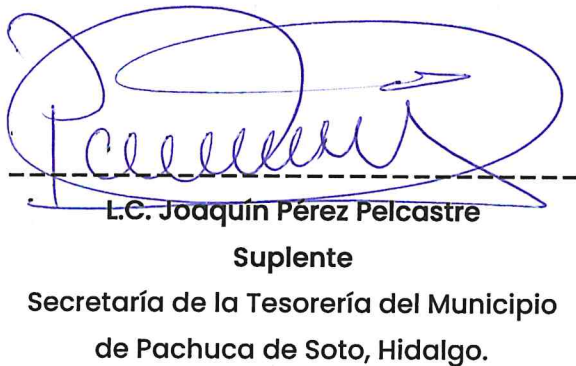 L.C. Joaquín Pérez Pelcastre
Suplente
Secretaría de la Tesorería del Municipio
de Pachuca de Soto, Hidalgo.